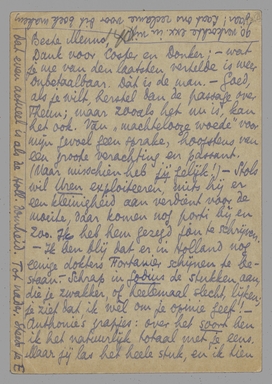 Beste Menno,
Dank voor Coster en Donker; – wat
je me van den laatsten vertelde is weer
onbetaalbaar. Dàt is de man. – Goed,
als je wilt, herstel dan de passage over
Thelen; maar zooals het nu is, kan
het ook. Van „machtelooze woede" voor
mijn gevoel geen sprake, hoogstens van
een groote verachting en passant.
(Maar misschien heb jij gelijk.) – Stols
wil Uren exploiteeren, mits hij er
een kleinigheid aan verdient voor de
moeite, daar komen nog porti bij en
zoo. Ik heb hem gezegd jou te schrijven.
– Ik ben blij dat er in Holland nog
eenige dokters Fontanes schijnen te be-
staan. – Schrap in de stukken aan
die je zwakker, of heelemaal slecht, lijken;
je ziet dat ik wèl om je opinie geef! –
Anthonie's grapjes: over het soort ben
ik het natuurlijk totaal met je eens.
Maar jij las het heele stuk, en ik zien
dat even actueel is als de Holl. Tot nader. Steeds je E.